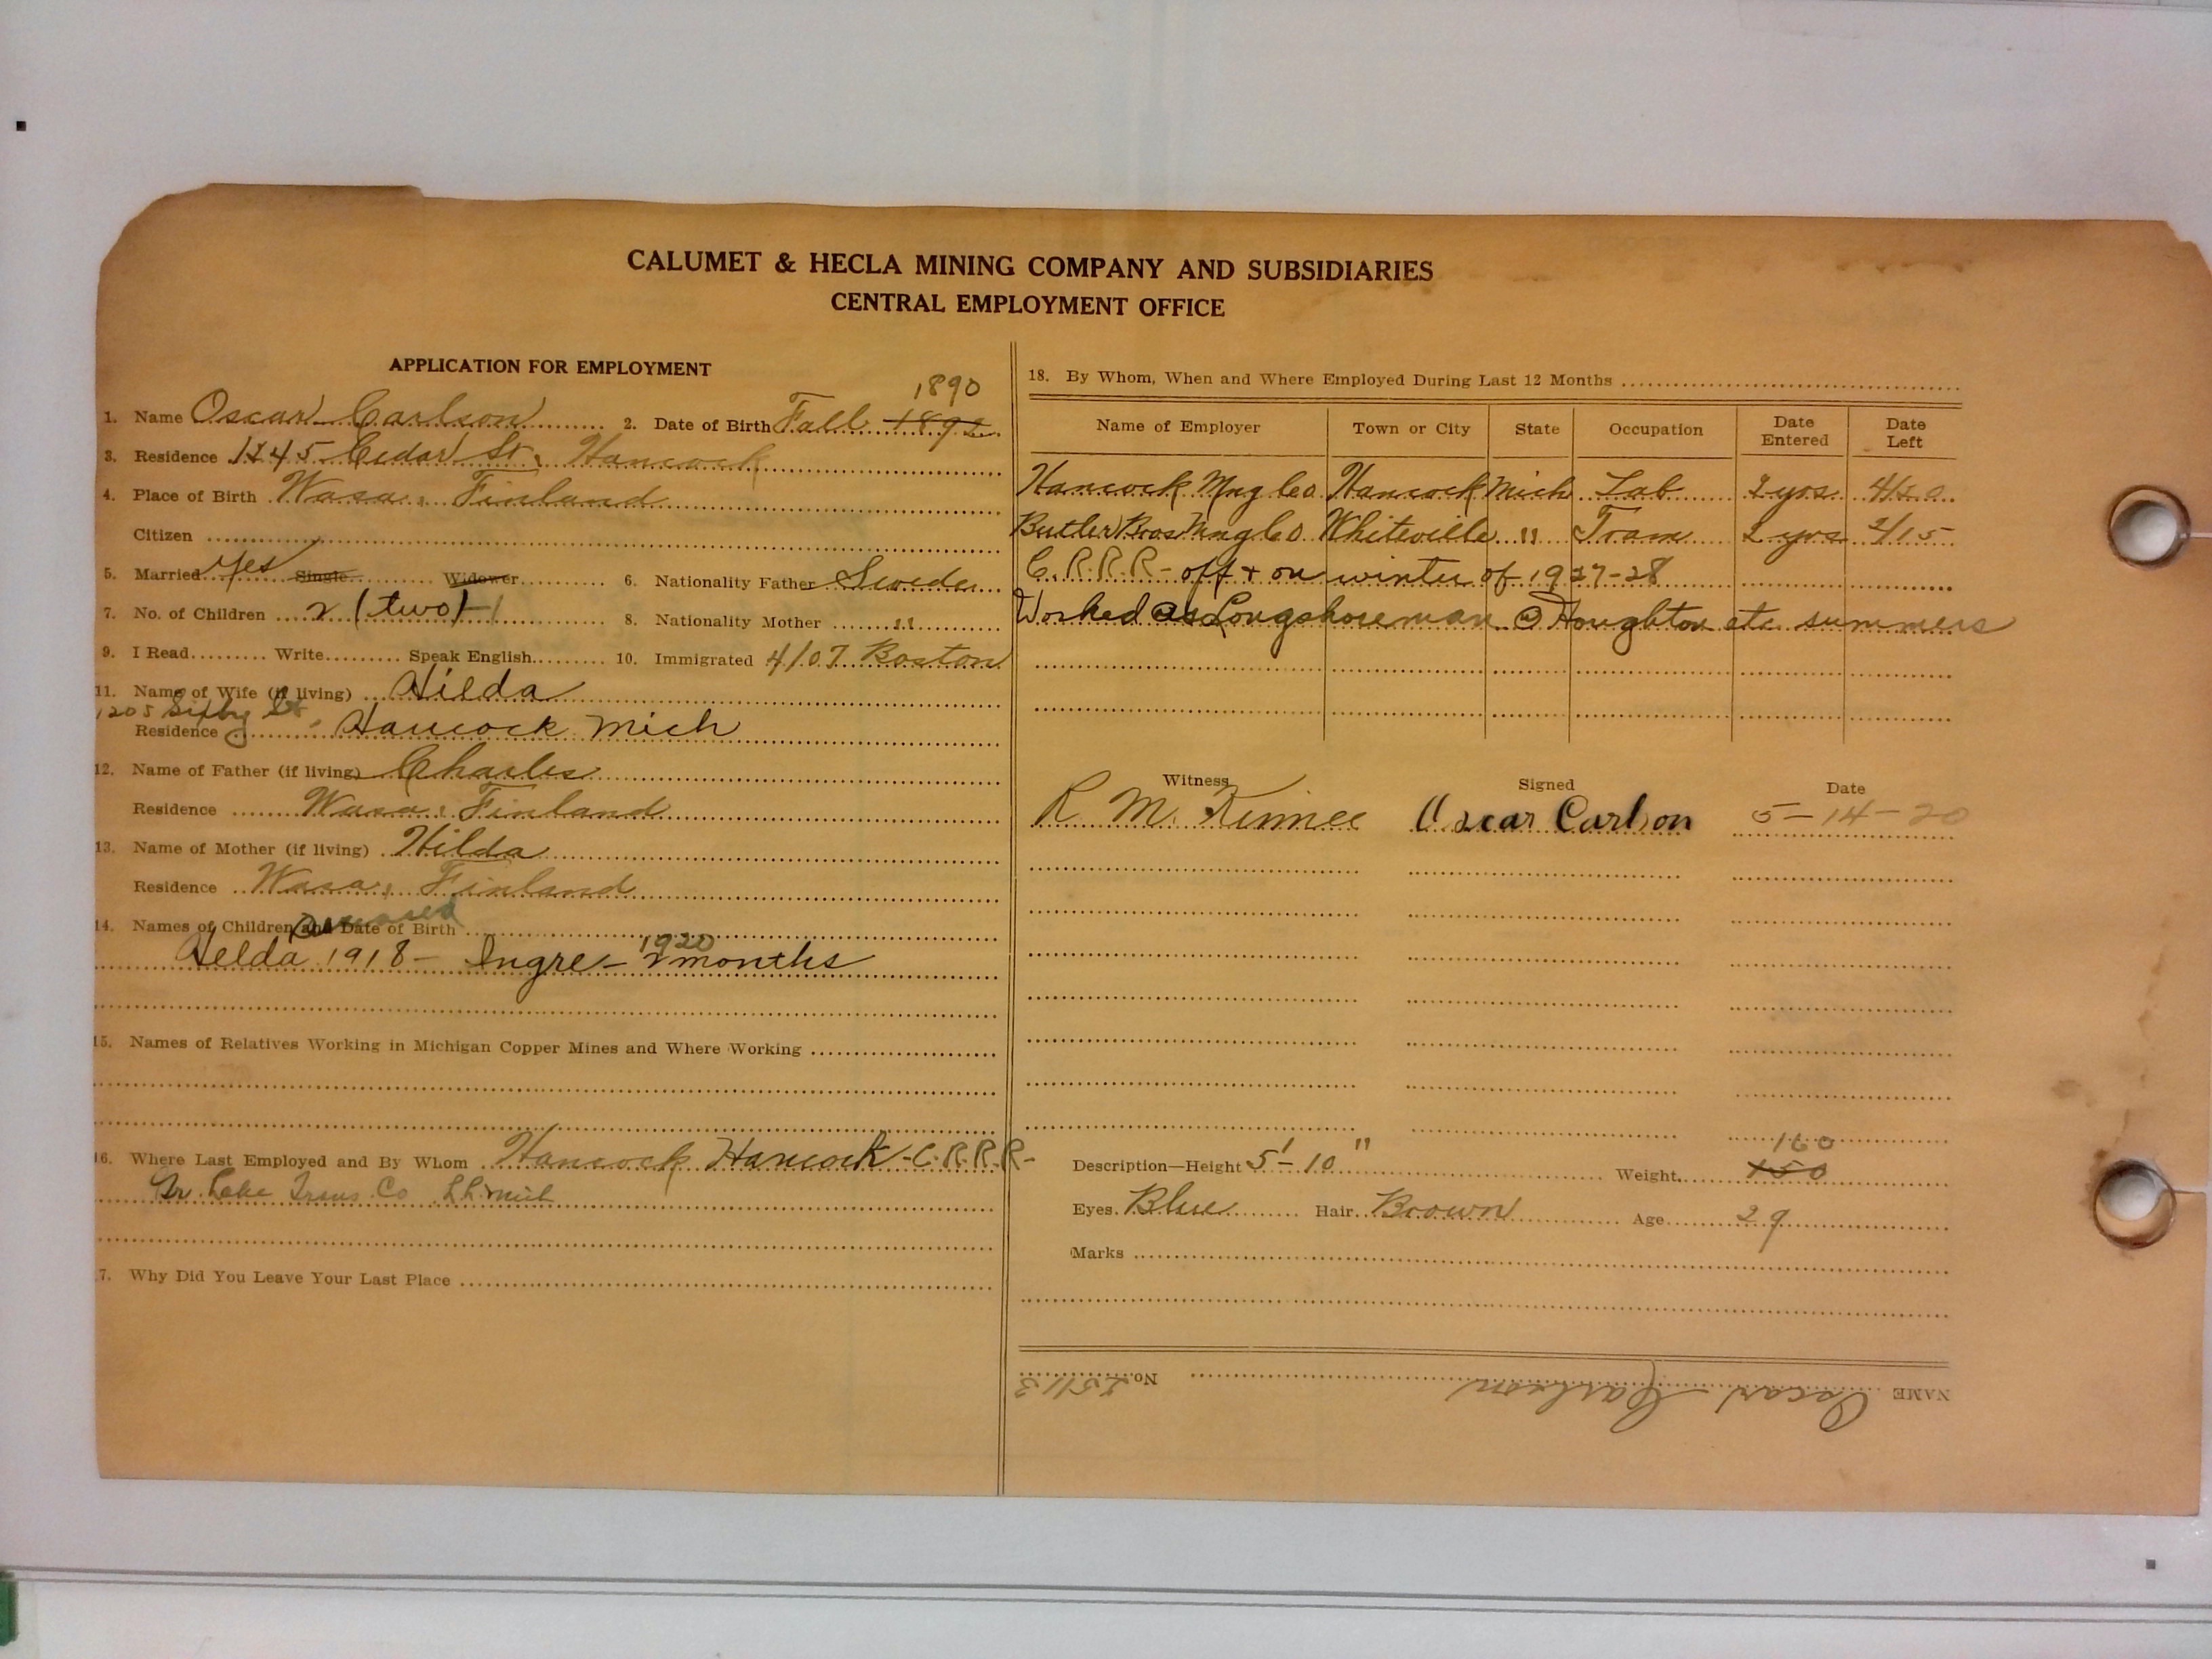 CALUMET & HECLA MINING COMPANY AND SUBSIDIARIES
CENTRAL EMPLOYMENT OFFICE
APPLICATION FOR EMPLOYMENT
1890
1. Name Oscar Carlson 2. Date of Birth Fall 1892
3. Residence 1245 Cedar St. Hancock
4. Place of Birth Wasa, Finland
Citizen
5. Married yes Single Widower 6. Nationality Father Swede
7. No. of Children 2 (two) - 1 8. Nationality Mother "
9. I Read Write Speak English 10. Immigrated 4/07 Boston
11. Name of Wife (if living) Hilda
1205 St
Residence Hancock Mich
12. Name of Father (if living) Charles
Residence Wasa, Finland
13. Name of Mother (if living) Hilda
Residence Wasa, Finland
14. Names of Children and Date of Birth deceased
1920
Helda 1918 - Ingre - 2 months
15. Names of Relatives Working in Michigan Copper Mines and Where Working
16. Where Last Employed and By Whom Hancock Hancock - C.R.R.R-
Gr. Lake Trans. Co
17. Why Did You Leave Your Last Place
18. By Whom, When and Where Employed During Last 12 Months
Name of Employer Town or City State Occupation Date Entered Date Left
Hancock Mng Co Hancock Mich Lab 2 yrs
Butler Bros Mng Co Whiteville " Tram 2 yrs 2/15
C.R.R.R- off & on winter of 1927-28
Worked as Longshoreman @ Houghton etc summers
Witness Signed Date
R. M. Oscar Carlson 5-14-20
160
Description—Height 5'-10" Weight 150
Eyes Blue Hair Brown Age 29
Marks
NAME Oscar Carlson No. 25113